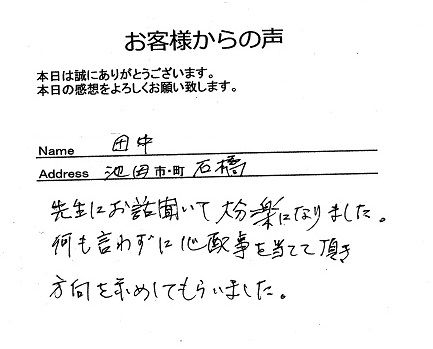 お客様からの声
本日は誠にありがとうございます。
本日の感想をよろしくお願い致します。
Name 田中
Address 池田市・町 石橋
先生にお話聞いて大分楽になりました。
何も言わずに心配事を当てて頂き
方向を示めしてもらいました。